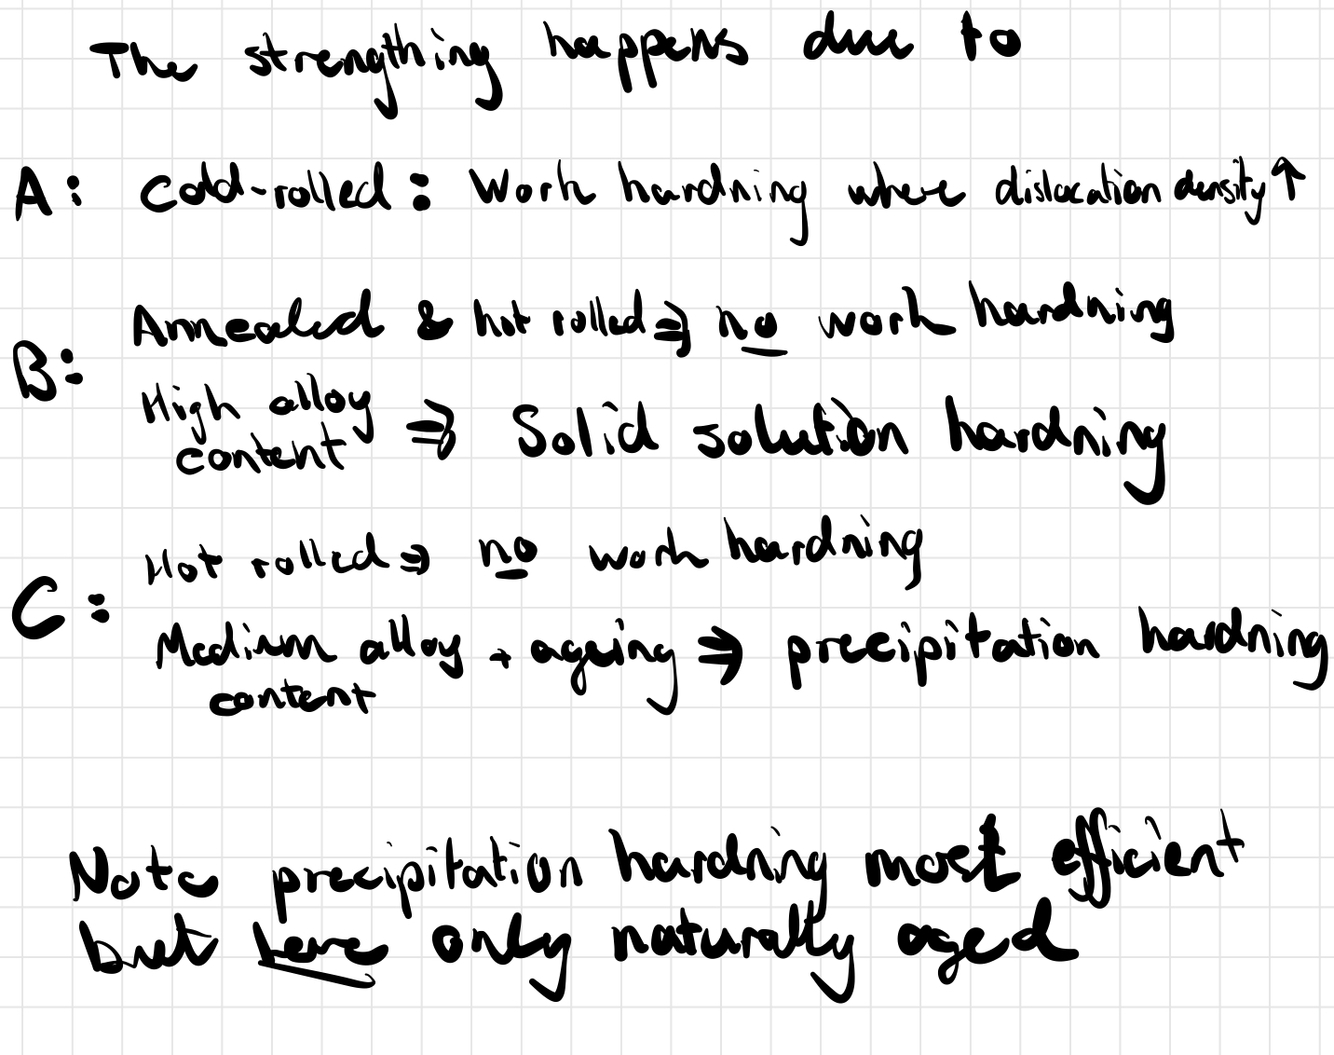 The strengthing happens due to
A: Cold-rolled: Work hardning where dislocation density ↑
B: Annealed & hot rolled ⇒ no work hardning
High alloy content ⇒ Solid solution hardning
C: Hot rolled ⇒ no work hardning
Medium alloy content + ageing ⇒ precipitation hardning
Note precipitation hardning most efficient
but here only naturally aged